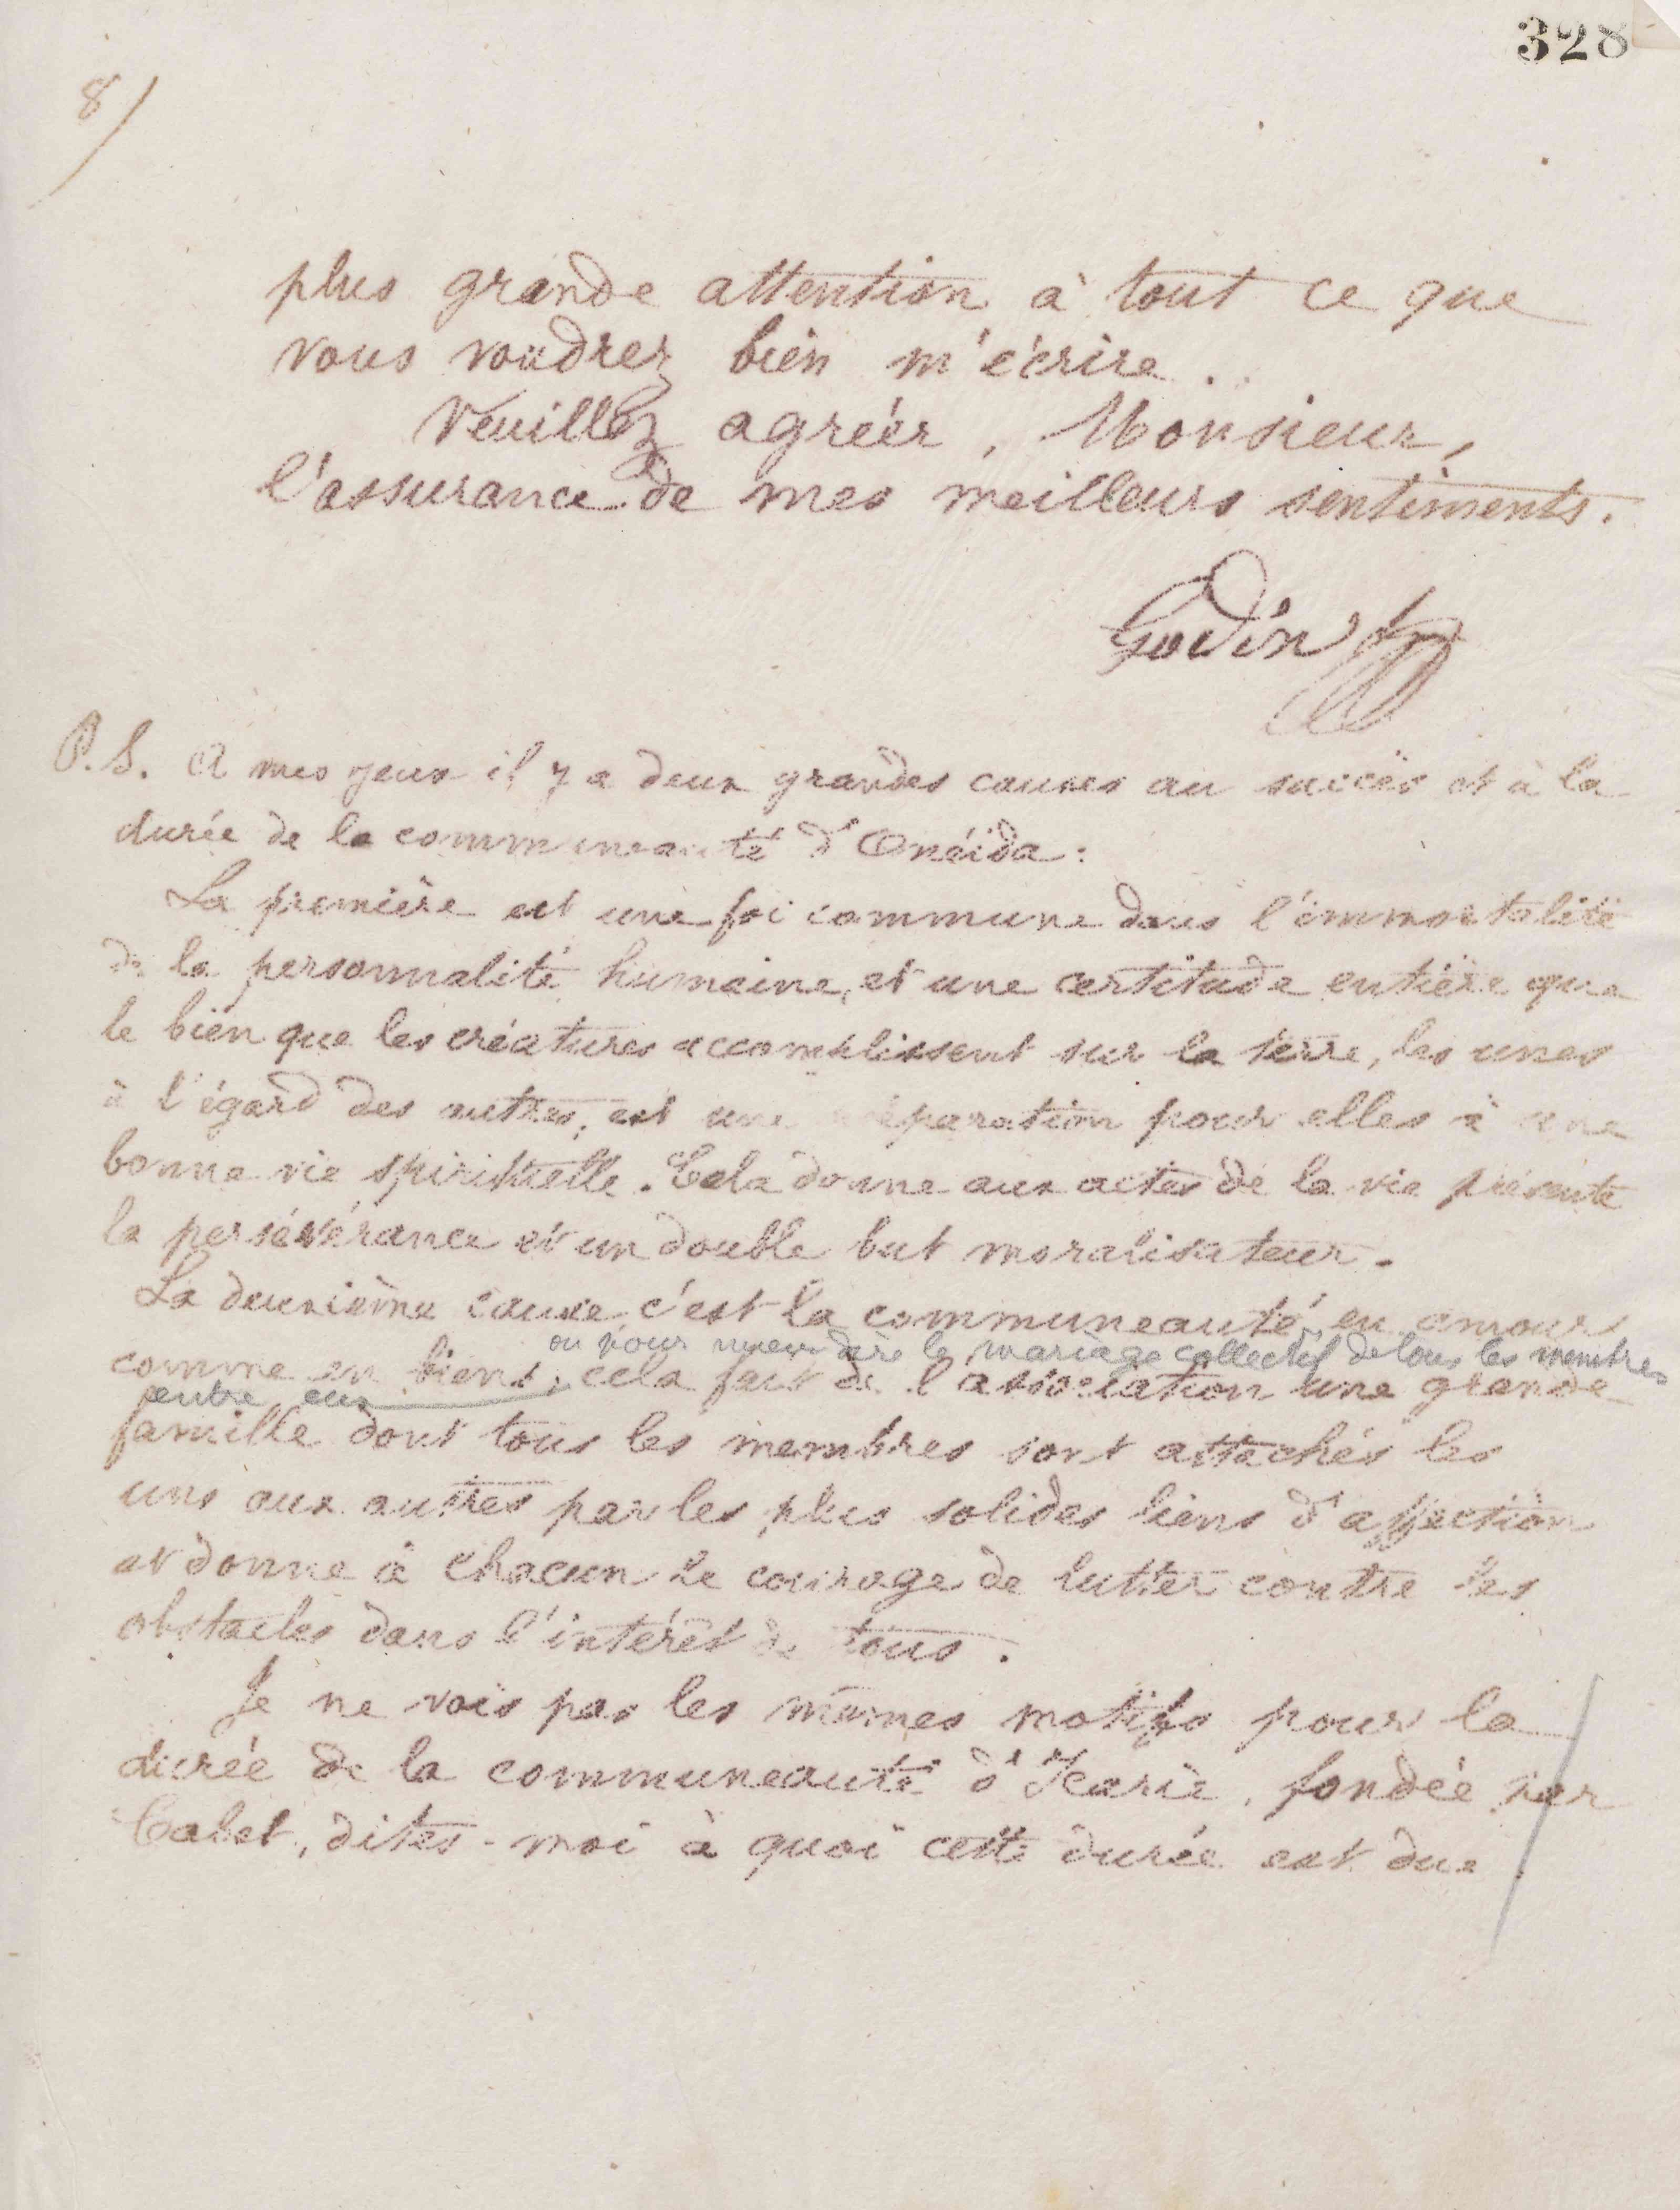 328
8/
plus grande attention à tout ce que
vous voudrez bien m'écrire.
Veuillez agréer, Monsieur,
l'assurance de mes meilleurs sentiments.
Godin
P.S. A mes yeux il y a deux grandes causes au succès et à la
durée de la communeauté d'Onéida :
La première est une foi commune dans l'immortalité
de la personnalité humaine, et une certitude entière que
le bien que les créatures accomplissent sur la terre, les unes
à l'égard des autres, est une préparation pour elles à une
bonne vie spirituelle. Cela donne aux actes de la vie présente
la persévérance et un double but moralisateur.
La deuxième cause, c'est la communeauté en amour
ou pour mieux dire le mariage collectif de tous les membres
comme en biens ; cela fait de l'association une grande
entre eux
famille dont tous les membres sont attachés les
uns aux autres par les plus solides liens d'affection
et donne à chacun le courage de lutter contre les
obstacles dans l'intérêt de tous.
Je ne vois pas les mêmes motifs pour la
durée de la communeauté d'Icarie, fondée par
Cabet, dites-moi à quoi cette durée est due